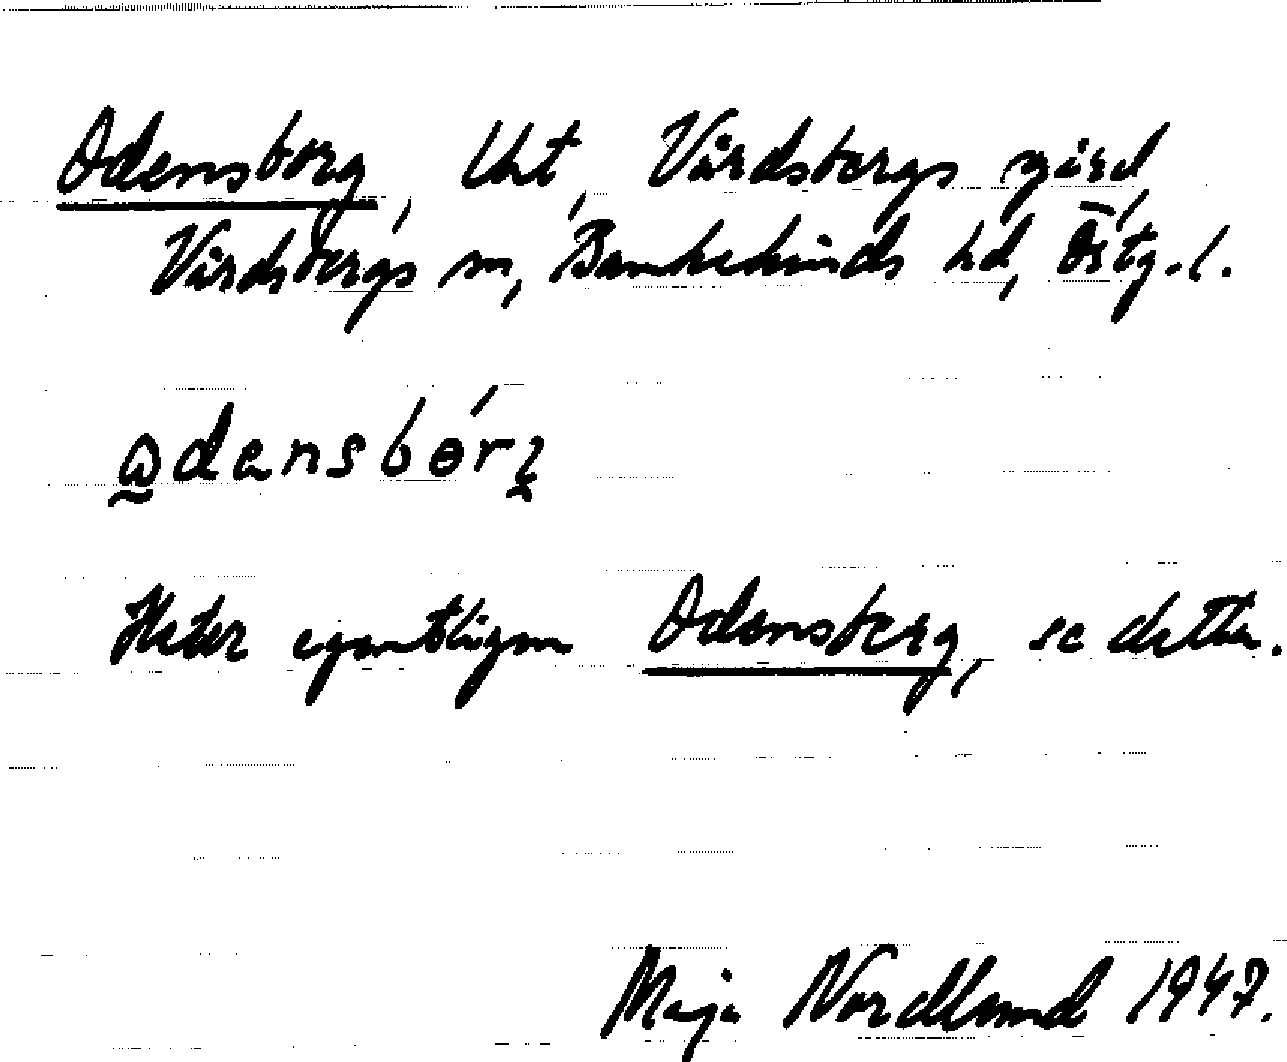 Odensborg, Uht, Vårdsbergs gård,
Vårdsbergs sn, Bankekinds hd, Östg. l.
Heter egentligen Odensberg, se detta.
Maja Nordlund 1947.